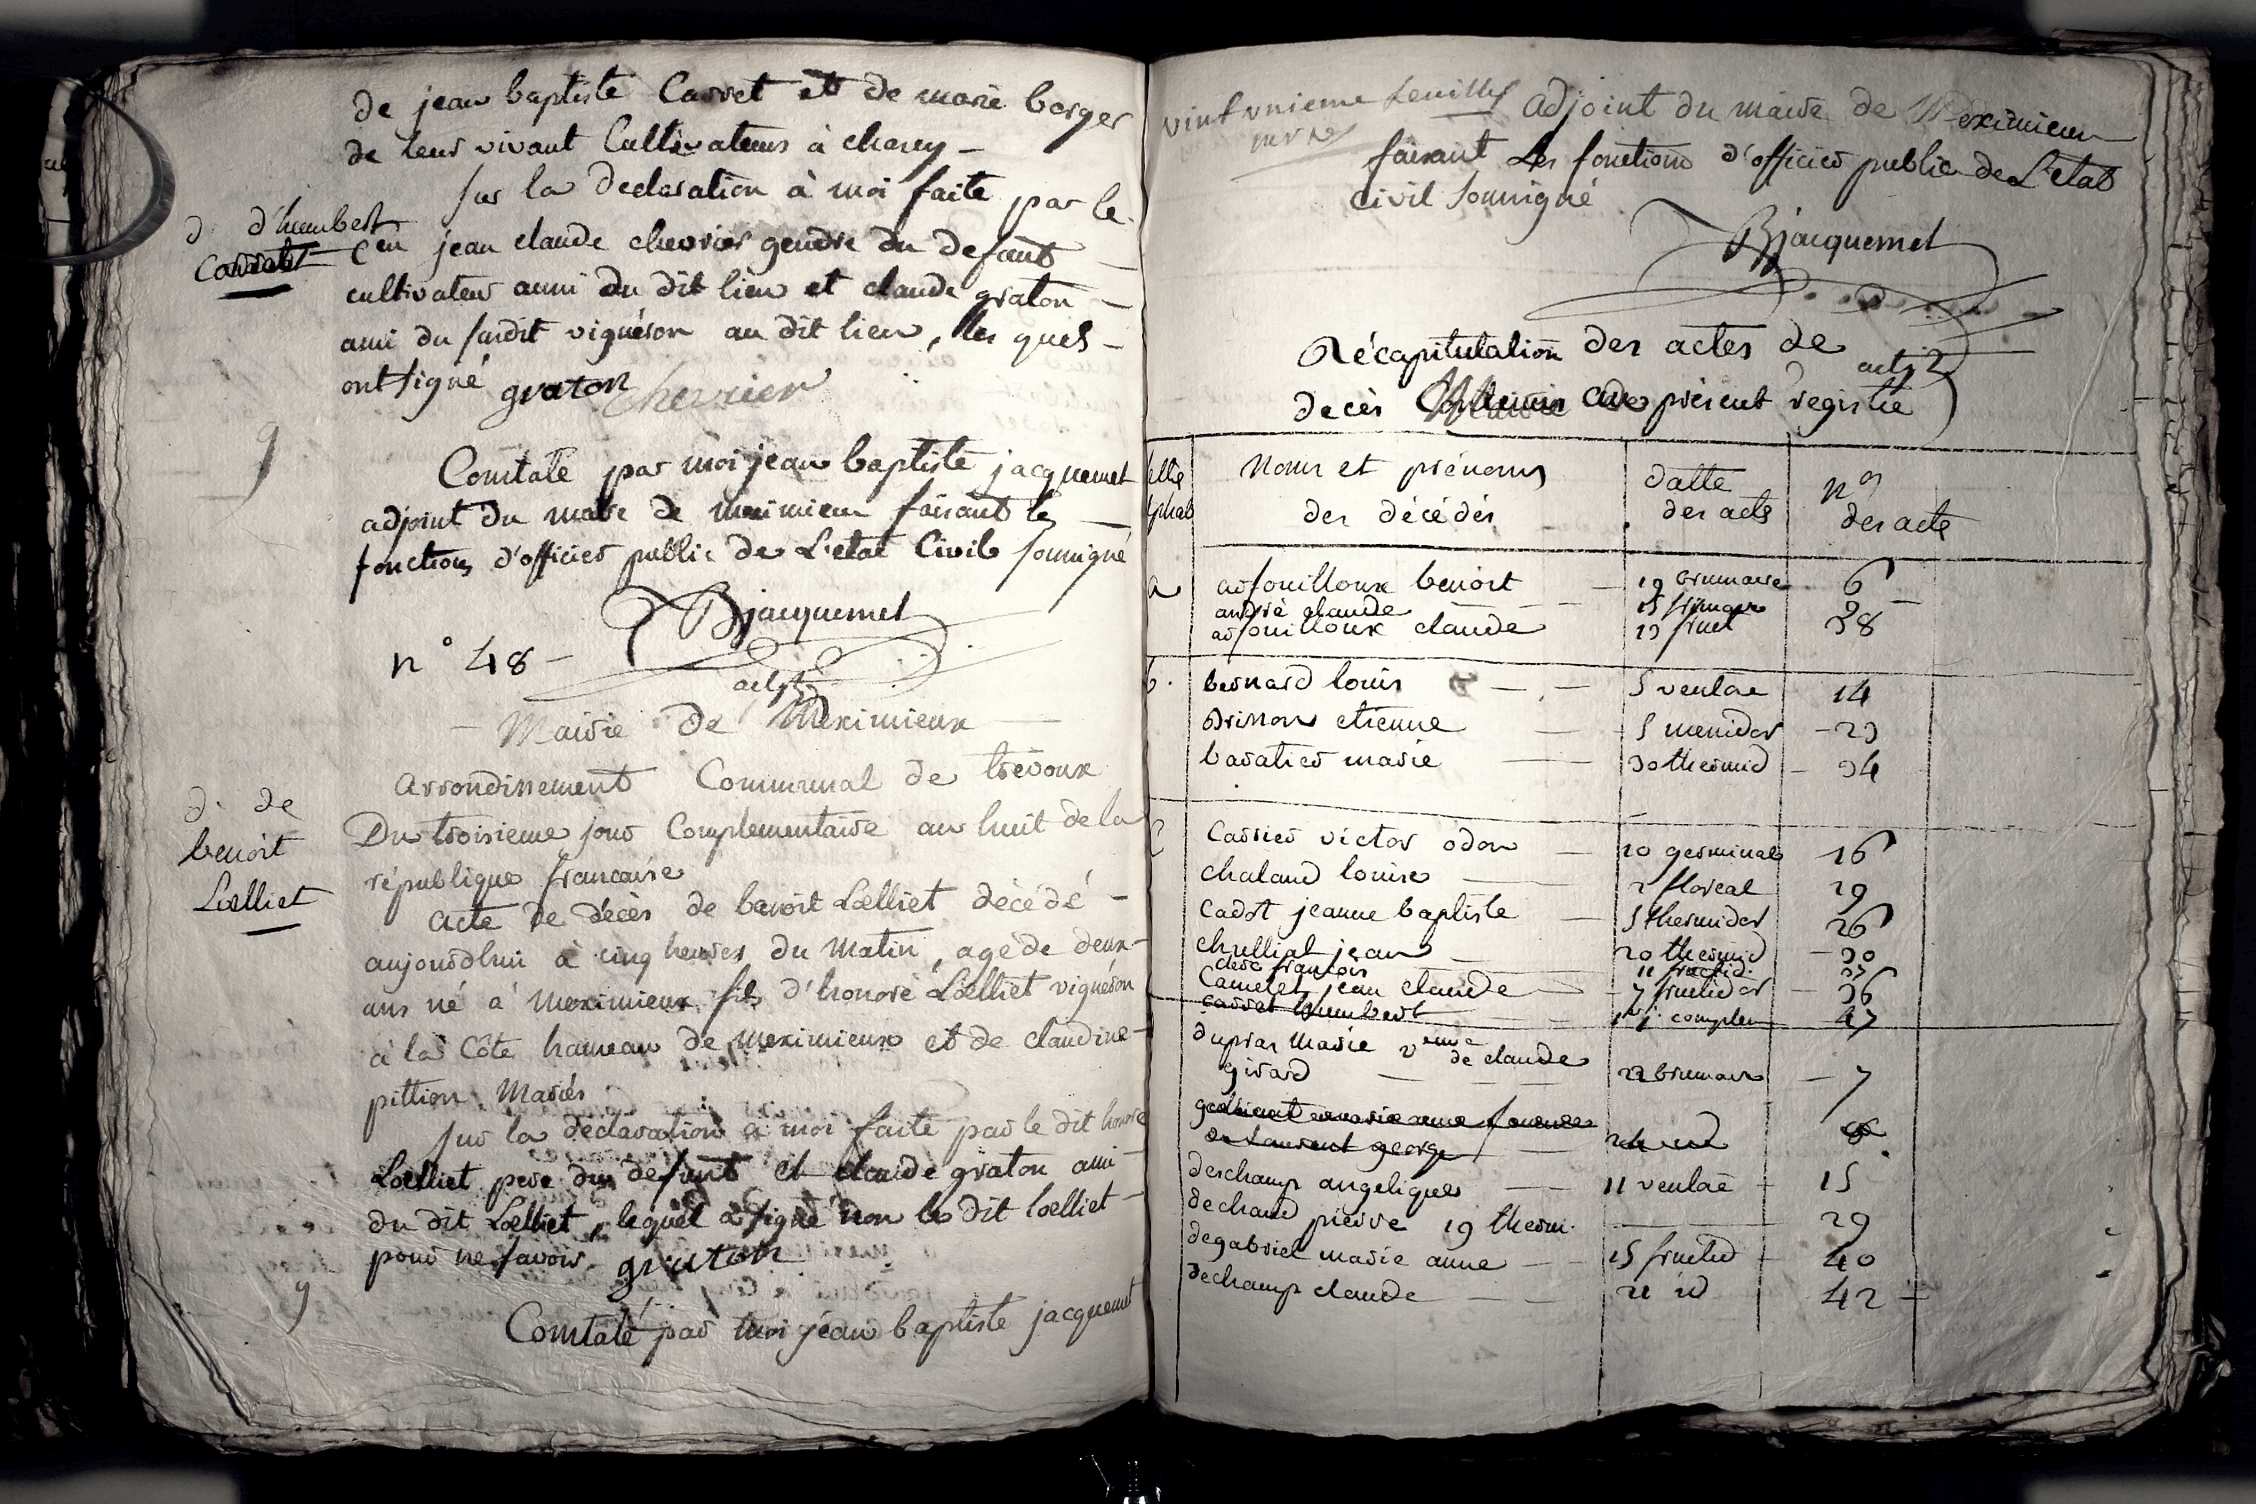 de jean baptiste Carret et de marie berger
de leur vivant Cultivateurs à charey -
d. d'humbert
Carret
Sur la declaration à moi faite par le
cen jean claude chevrier gendre du defunt
cultivateur aussi du dit lieu et claude graton
ami du susdit vignéron au dit lieu, les quels
ont signé graton chevrier
9
Constaté par moi jean baptiste jacquemet
adjoint du maire de meximieu faisant les
fonctions d'officier public de L'état Civil soussigné
Bjacquemet
adjt
n° 48 -
Mairie de Meximieux
arrondissement Communal de trévoux
d. de
benoit
Lœlliet
Du troisieme jour Complementaire an huit de la
république francaise
acte de décès de benoit Lœlliet décédé -
aujourdhui à cinq heures du matin, agé de deux
ans né à meximieux fils d'honoré Lœlliet vignéron
à la Côte hameau de meximieux et de claudine
pittion. Mariés
sur la déclaration à moi faite par le dit honoré
Lœlliet pere du defunt et claude graton ami
du dit Lœlliet, lequel a signé non le dit lœlliet
pour ne savoir. graton
9
Constaté par moi jéan baptiste jacquemet
vint unieme feuillet
adjoint du maire de Meximieu
faisant Les fonctions d'officier public de L'etat
civil soussigné
Bjacquemet
adjt
Récapitulation des actes de
decès Contenus au présent registre
lettre alphab | noms et prénoms des décédés | datte des acts | nos des acte
a arfouilloux benoit 19 brumaire 6
andré claude 15 frimaire
arfouilloux claude 13 fruct 38
b. bernard louis 5 ventôe 14
brisson etienne 5 messidor 23
baratier marie 30 thermid 34
C Carrier victor odon 20 germinal 16
chaland louise 2 floréal 19
Cadot jeanne baptiste 5 thermidor 26
chullial jean 20 thermid 30
clerc francois 11 fructid. 37
Camelet jean claude 7 fructidor 36
carret humbert 1er complem 47
dupras marie veuve de claude
girard 22 brumaire 7
de Laurent george 24 id 8
deschamp angelique 11 ventôe 15
dechaud pierre 19 therm. 29
degabriel marie anne 15 fructid 40
dechamp claude 21 id 42